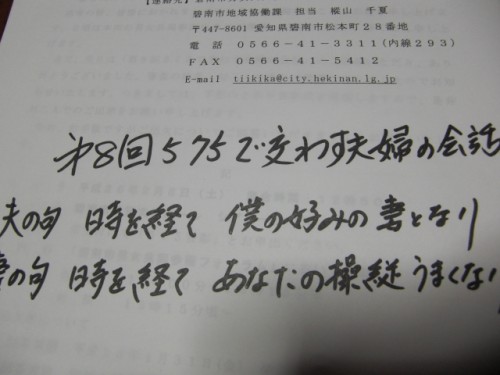 【連絡先】
碧南市地域協働課 担当 樅山 千夏
〒447-8601 愛知県碧南市松本町28番地
電話 0566-41-3311(内線293)
FAX 0566-41-5412
E-mail tiikika@city.hekinan.lg.jp
第8回575で交わす夫婦の会話
夫の句 時を経て 僕の好みの妻となり
妻の句 時を経て あなたの操縦うまくな